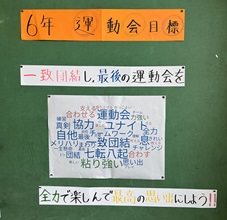 6年 運動会目標
一致団結し、最後の運動会を
運動会
合わせる
協力 ユニナイト
真剣
自他 チームワーク 全力
メリハリ 致団結 息
団結 七転八起 合わす
粘り強い 思い出
全力で楽しんで最高の思い出にしよう!!